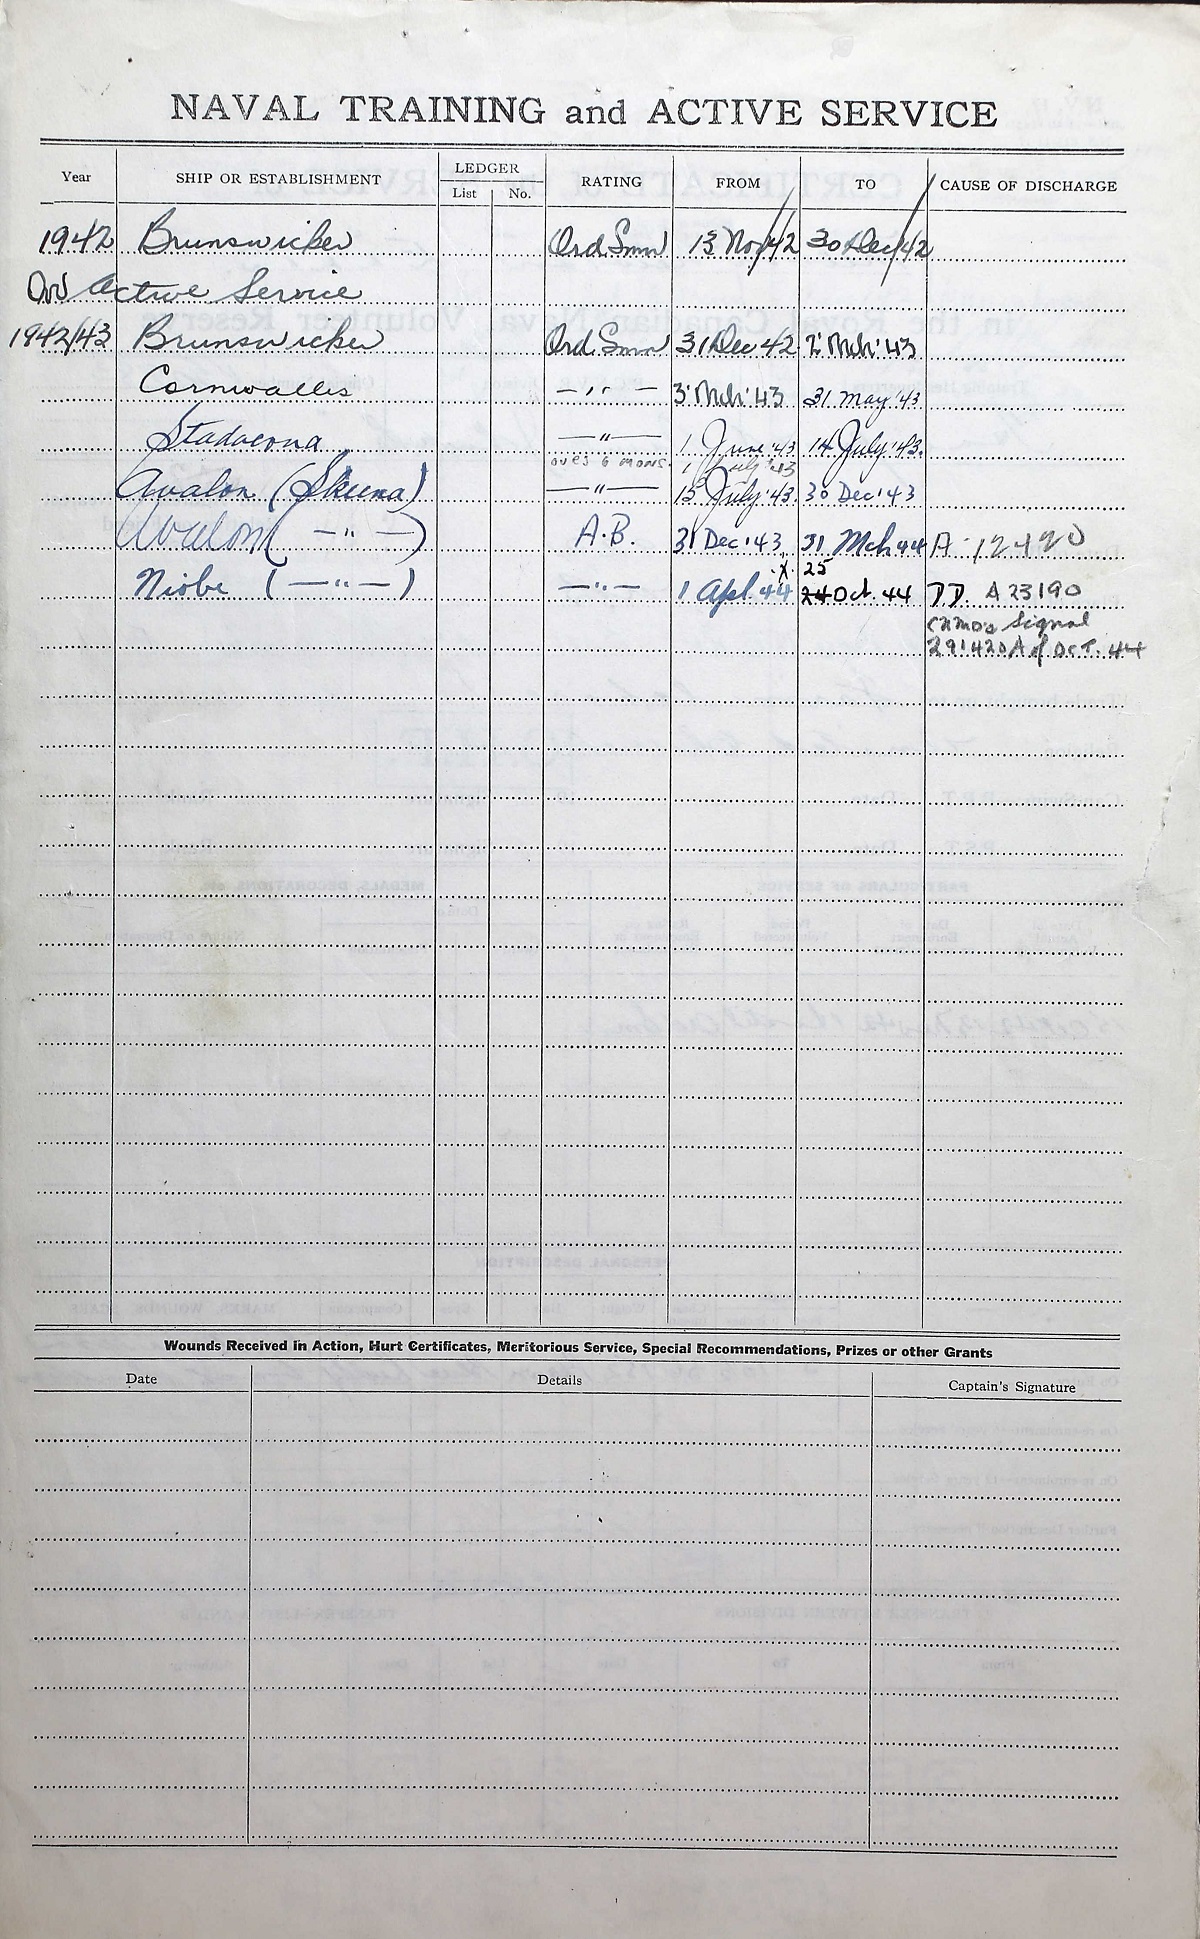 NAVAL TRAINING and ACTIVE SERVICE
Year SHIP OR ESTABLISHMENT LEDGER List No. RATING FROM TO CAUSE OF DISCHARGE
1942 Brunswicker Ord. Smn 13 Nov/42 30 Dec/42
On Active Service
1942/43 Brunswicker Ord. Smn 31 Dec 42 2 Mch '43
Cornwallis —"— 3 Mch '43 31 May '43
Stadacona —"— 1 June '43 14 July '43.
over 6 mons. 1 July '43
Avalon (Skeena) —"— 15 July '43. 30 Dec '43
Avalon ( —"— ) A.B. 31 Dec '43 31 Mch 44 A-12420
Niobe ( —"— ) —"— 1 Apl. 44 x 25 24 Oct. 44 DD. A 23190
CNMO's Signal
291420A of Oct. 44
Wounds Received in Action, Hurt Certificates, Meritorious Service, Special Recommendations, Prizes or other Grants
Date Details Captain's Signature